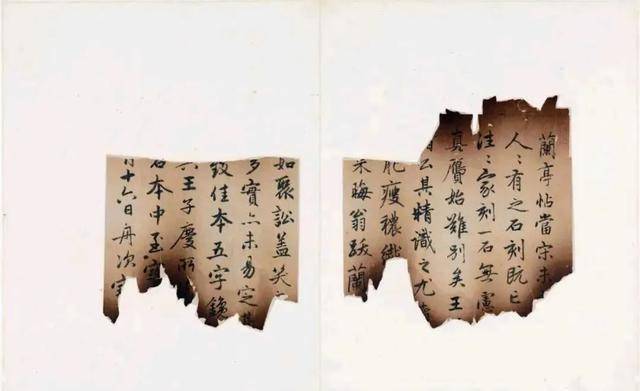 蘭亭帖當宋未
人〻有之石刻既亡
往〻家刻一石無慮
真贗始難別矣王
公其精識之尤
肥瘦穠纖
朱晦翁跋蘭
如聚訟蓋笑
多實亦未易定其
致佳本五字鑱
王子慶所
石本中至寶
月十六日舟次寶